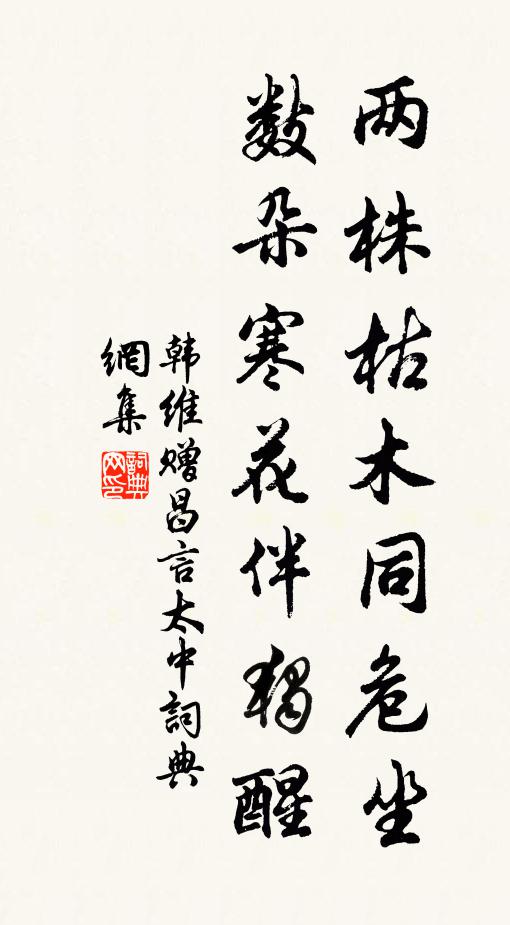 两株枯木同危坐
数朵寒花伴独醒
韩维赠昌言太中詞典
網集
詞典网印